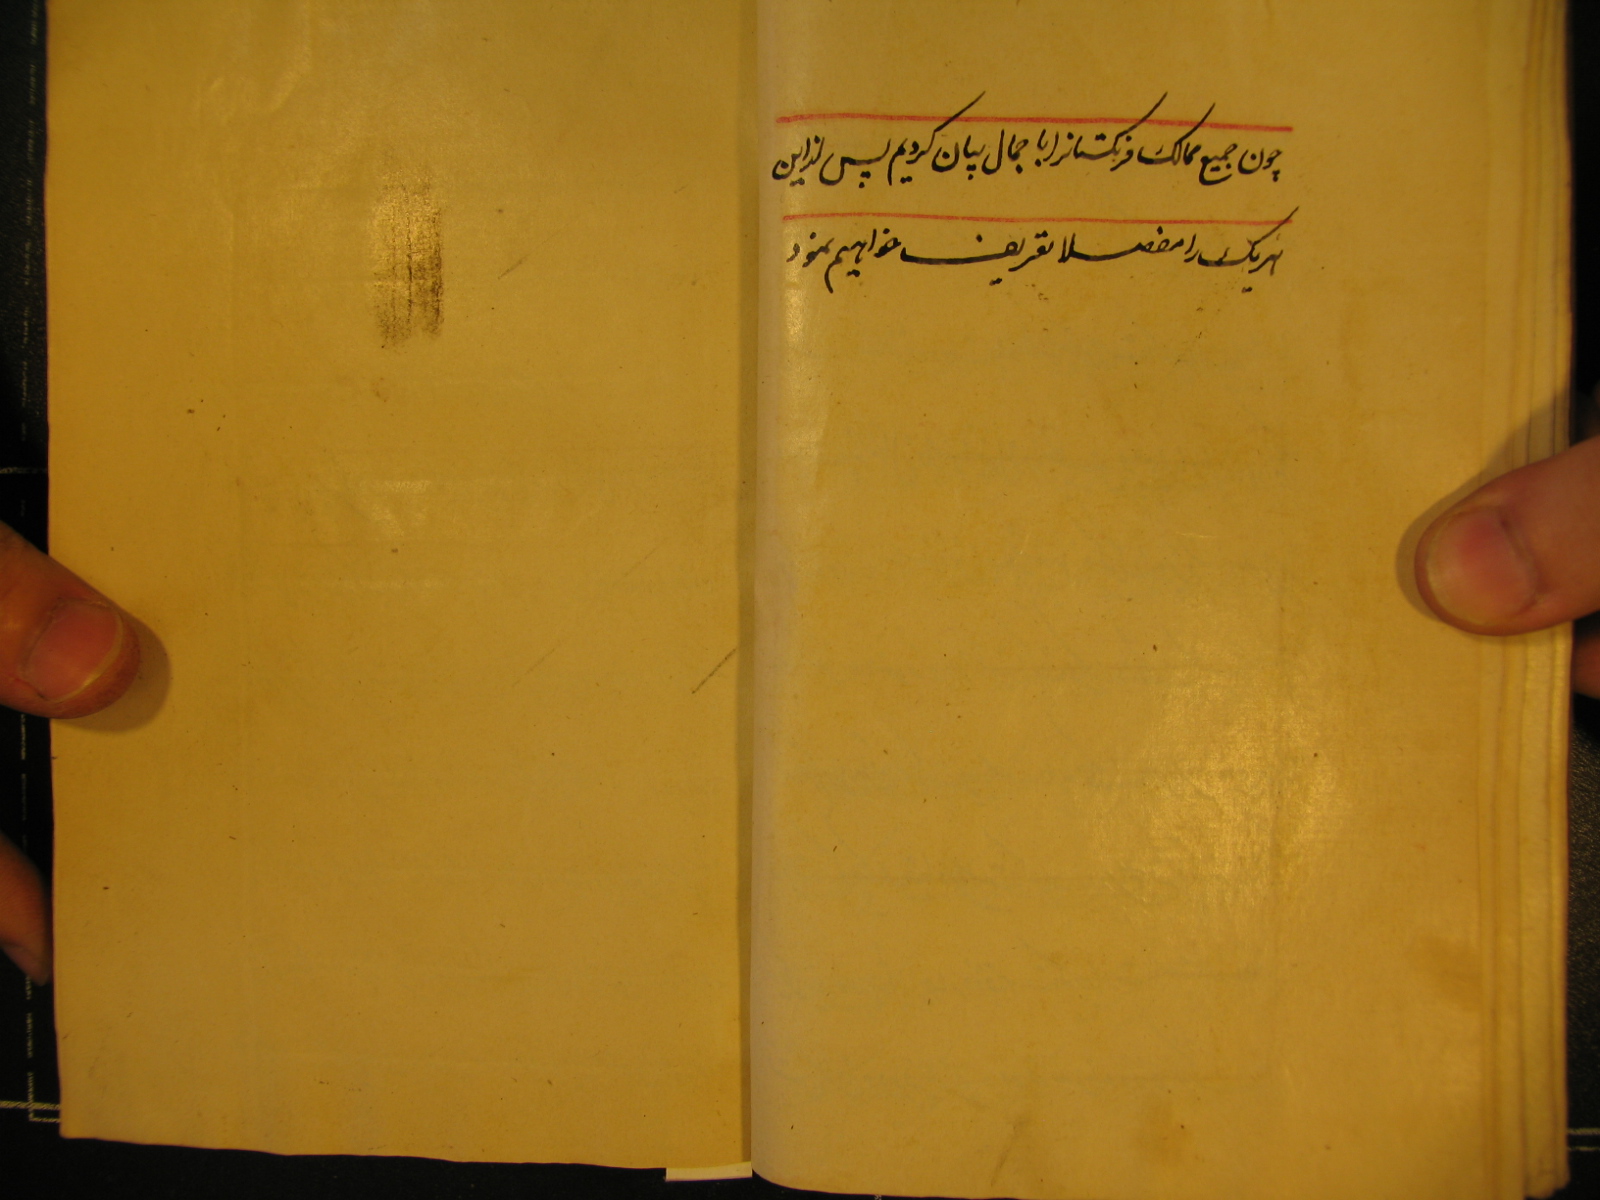 چون جمیع ممالک فرنکستانرا باجمال بیان کردیم پس ازین
هریک را مفصلا تعریف خواهیم نمود